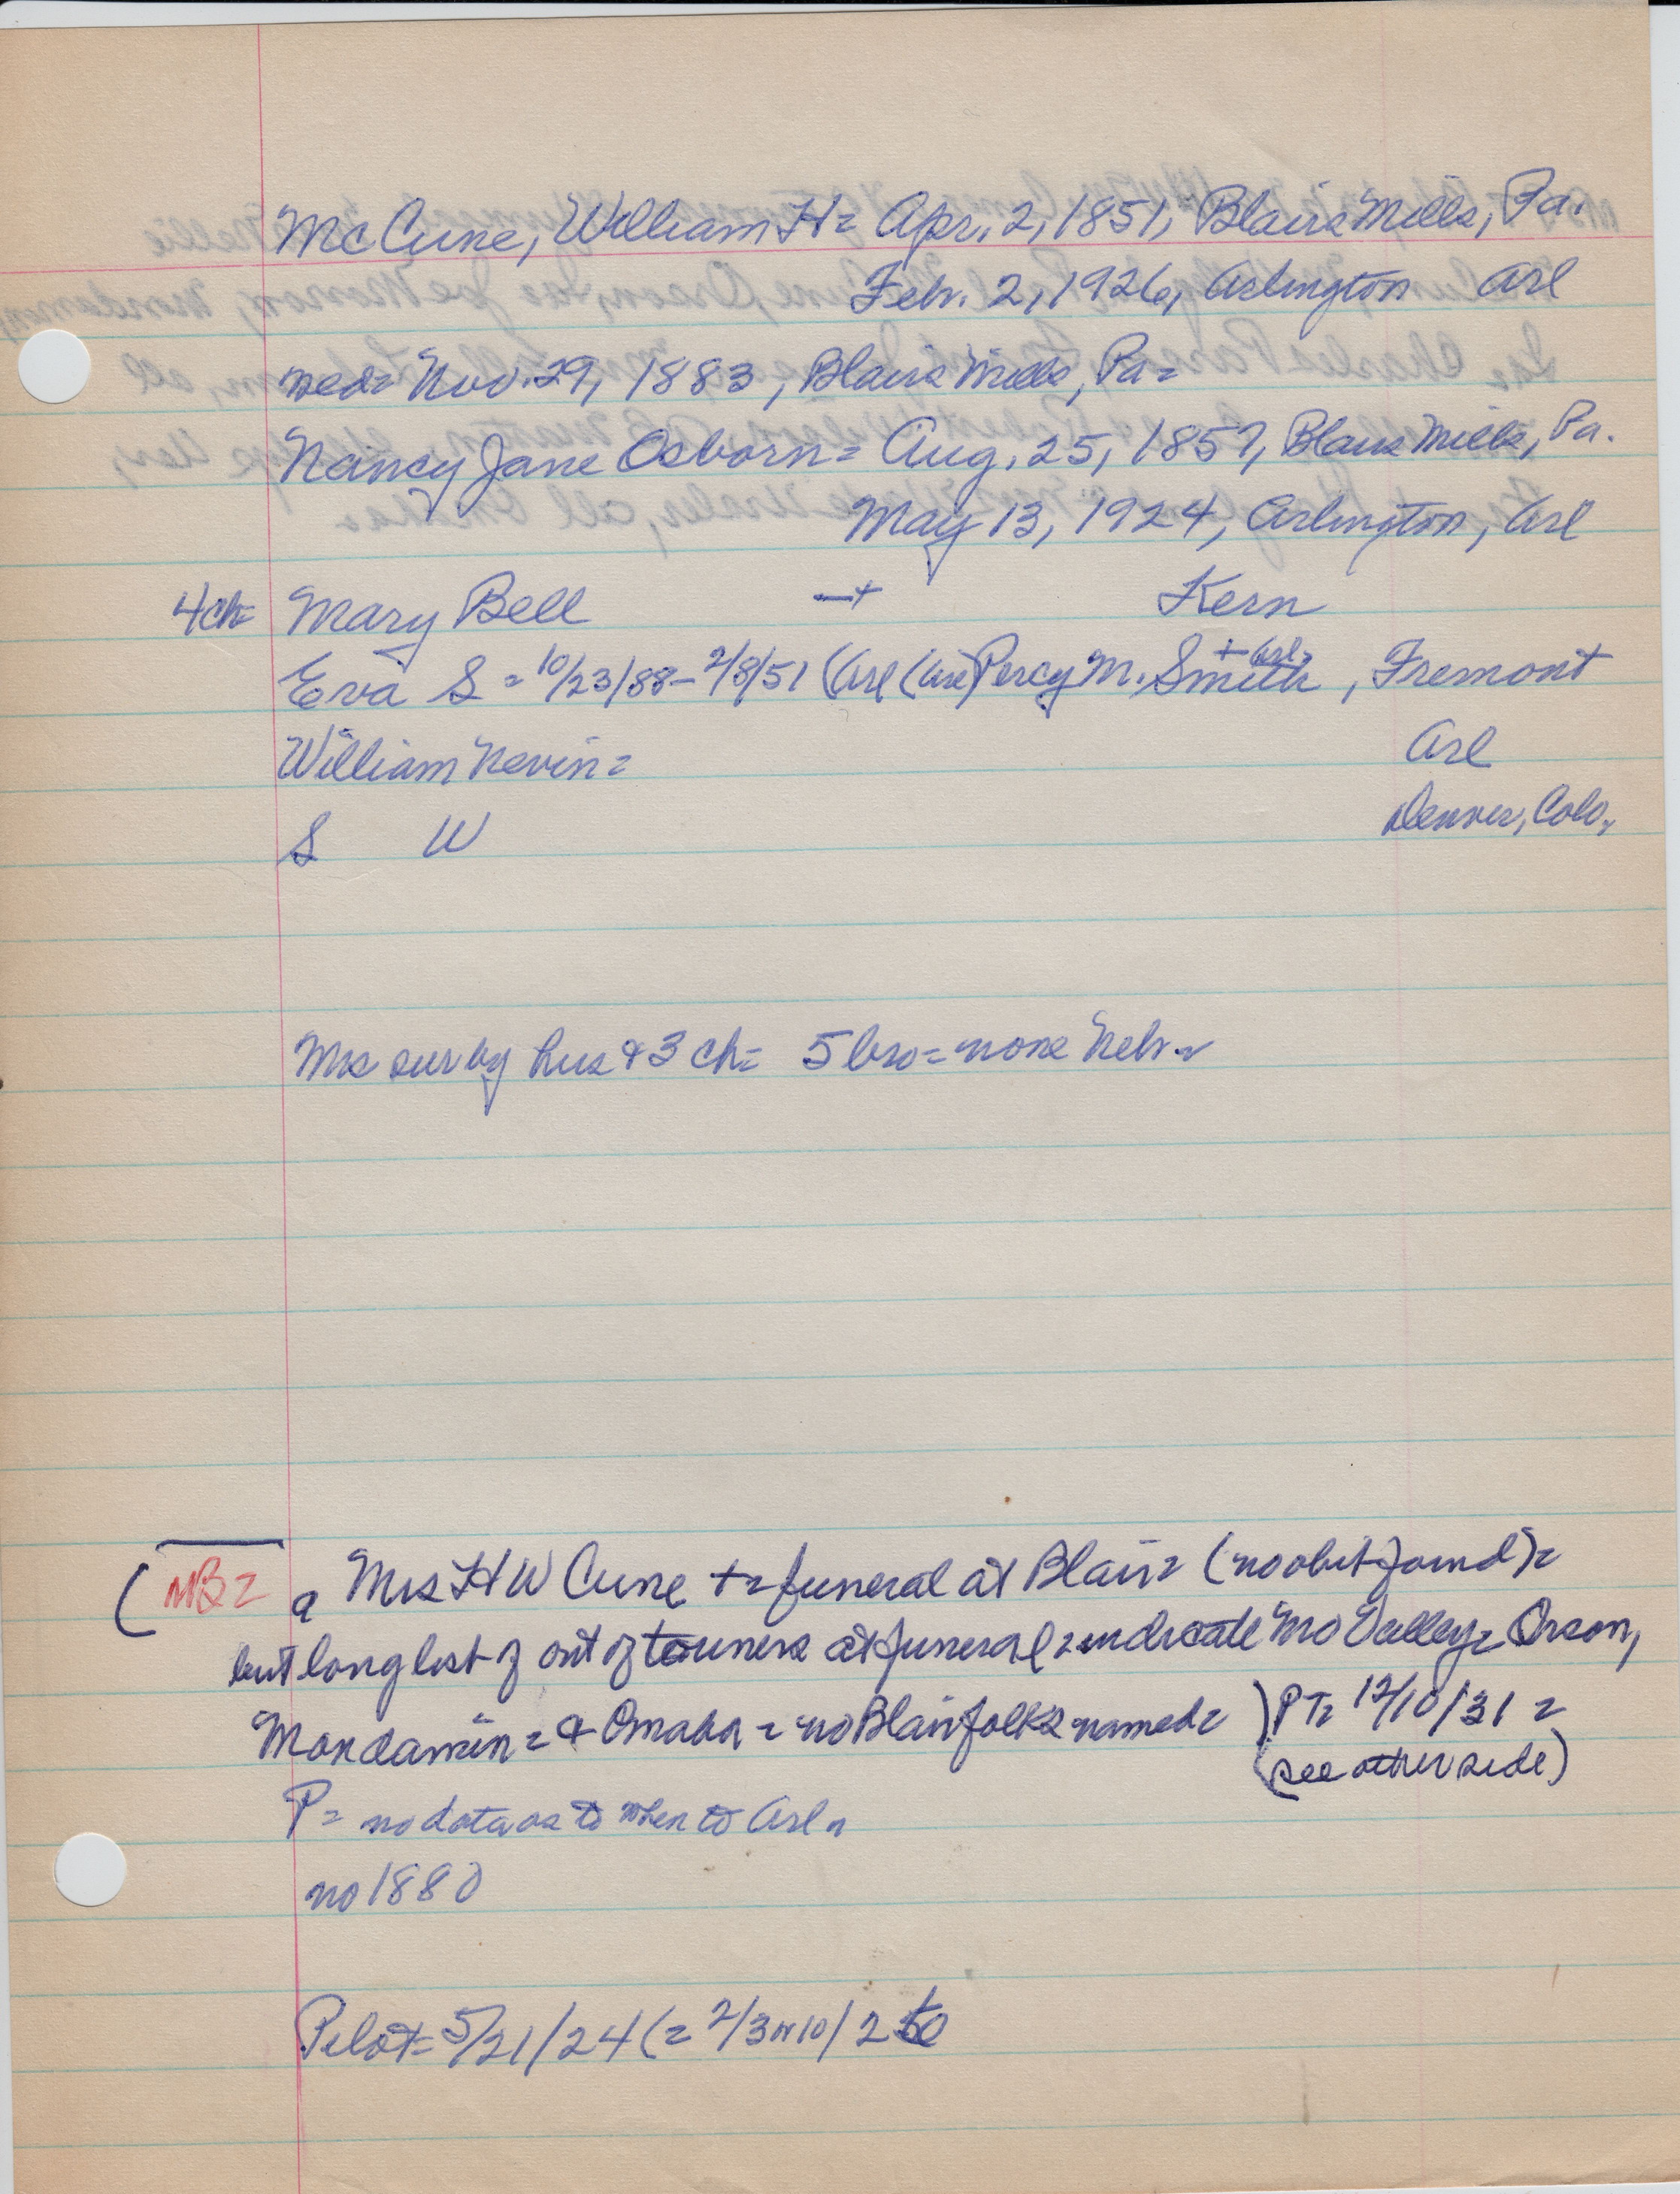 McCune, William H= Apr. 2, 1851, Blairs Mills, Pa.
Feb. 2, 1926, Arlington Arl
wed= Nov. 29, 1883, Blairs Mills, Pa=
Nancy Jane Osborn= Aug. 25, 1857, Blairs Mills, Pa.
May 13, 1924, Arlington, Arl
4 ch= Mary Bell —+ Kern
Eva S = 10/23/88 - 2/8/51 (Arl (Arl) Percy M. Smith + Arl=, Fremont
William Nevin= Arl
S W Denver, Colo.
Mrs sur by hus & 3 ch= 5 bro= none Nebr.
(MB= a Mrs H W Cune += funeral at Blair= (no obit found)=
but long list of out of towners at funeral= indicate Mo Valley= Orson,
Mondamin= & Omaha= no Blair folks named= ) PT= 12/10/31=
(see other side)
P= no data as to when to Arl.
no 1880
Pilot= 5/21/24 (= 2/3 or 10/26